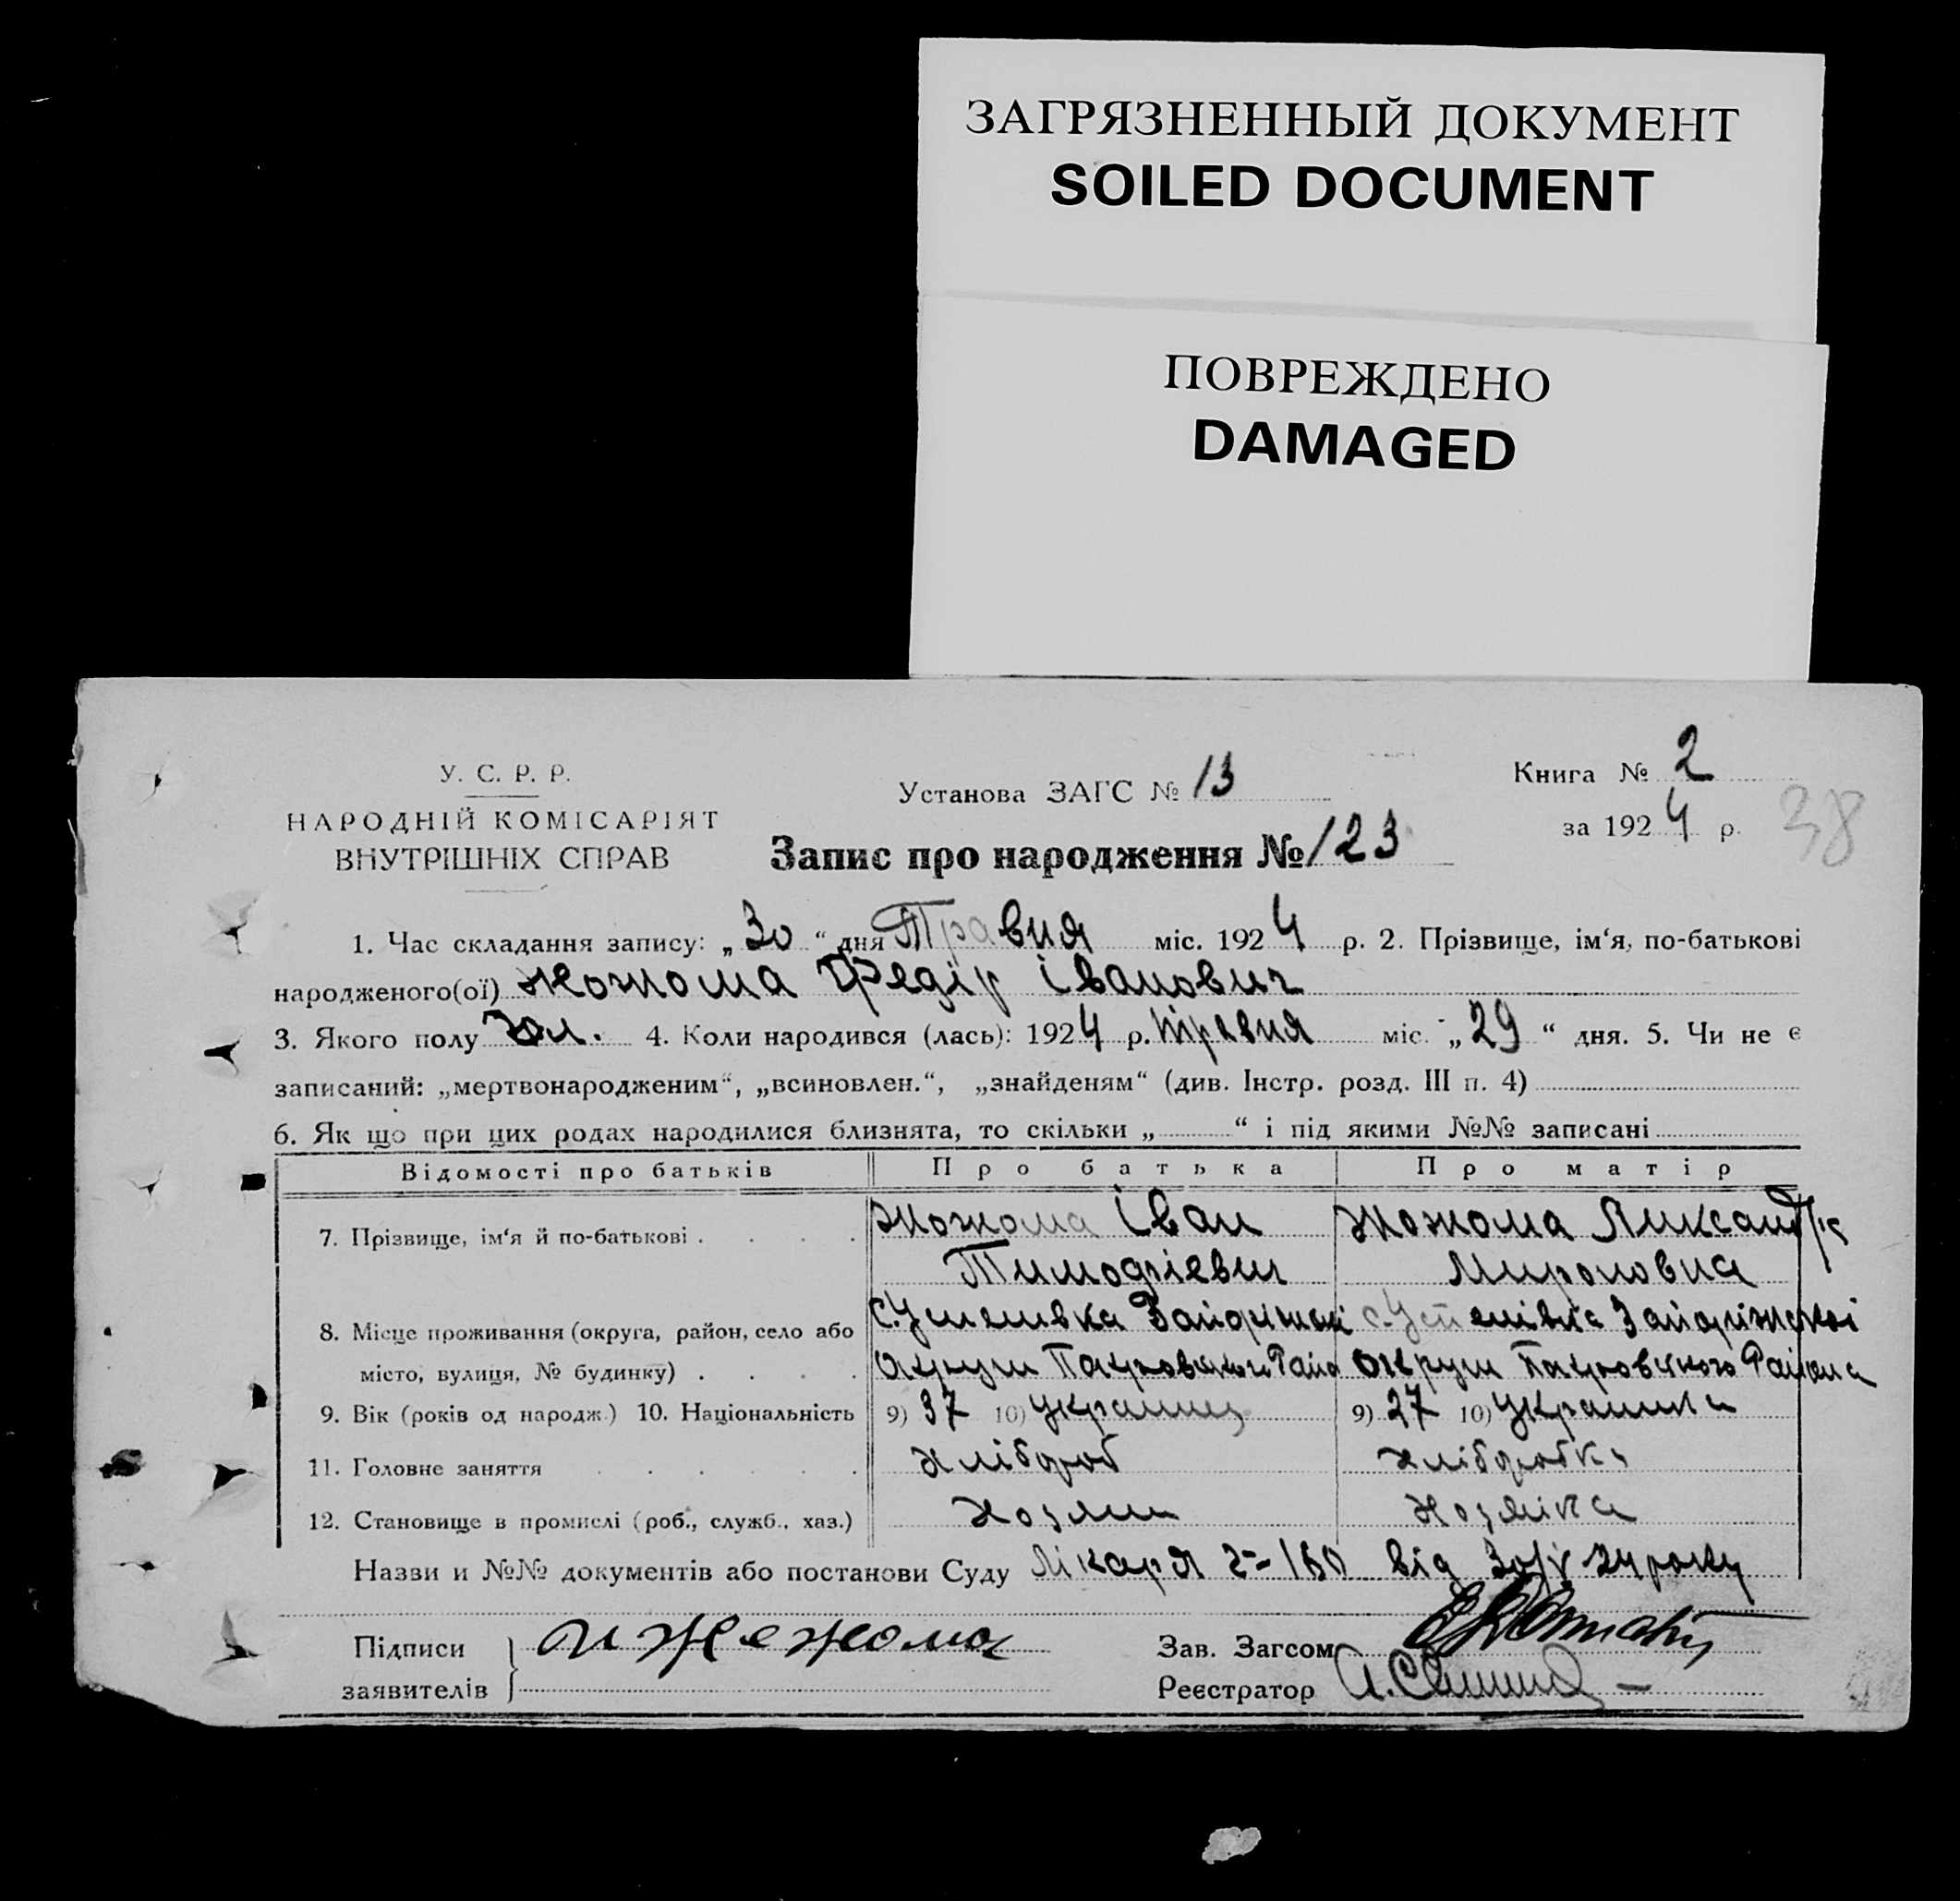 ЗАГРЯЗНЕННЫЙ ДОКУМЕНТ
SOILED DOCUMENT
ПОВРЕЖДЕНО
DAMAGED
У. С. Р. Р.
НАРОДНІЙ КОМІСАРІЯТ
ВНУТРІШНІХ СПРАВ
Установа ЗАГС № 13
Книга № 2
за 1924 р.
38
Запис про народження № 123
1. Час складання запису: „30“ дня Травня міс. 1924 р. 2. Прізвище, ім‘я, по-батькові
народженого(ої) Жожома Федір Іванович
3. Якого полу чол. 4. Коли народився (лась): 1924 р. травня міс. „29“ дня. 5. Чи не є
записаний: „мертвонародженим“, „всиновлен.“, „знайденям“ (див. Інстр. розд. III п. 4)
6. Як що при цих родах народилися близнята, то скільки „ “ і під якими №№ записані
Відомості про батьків Про батька Про матір
7. Прізвище, ім‘я й по-батькові . . . . Жожома Іван Жожома Ликсандра
Тимофіевич Мироновна
8. Місце проживання (округа, район, село або с. Успенивка с. Успенівка Запоріжскої
місто, вулиця, № будинку) . . . . округи Покровского Району округи Покровского Района
9. Вік (років од народж.) 10. Національність 9) 37 10) Украинец 9) 27 10) Украинка
11. Головне заняття . . . . . . хлібороб хліборобка
12. Становище в промислі (роб., служб., хаз.) Хозяин Хозяйка
Назви и №№ документів або постанови Суду Лікаря 160 від 30/V 24 року
Підписи
заявителів
и Жожома
Зав. Загсом
Реєстратор